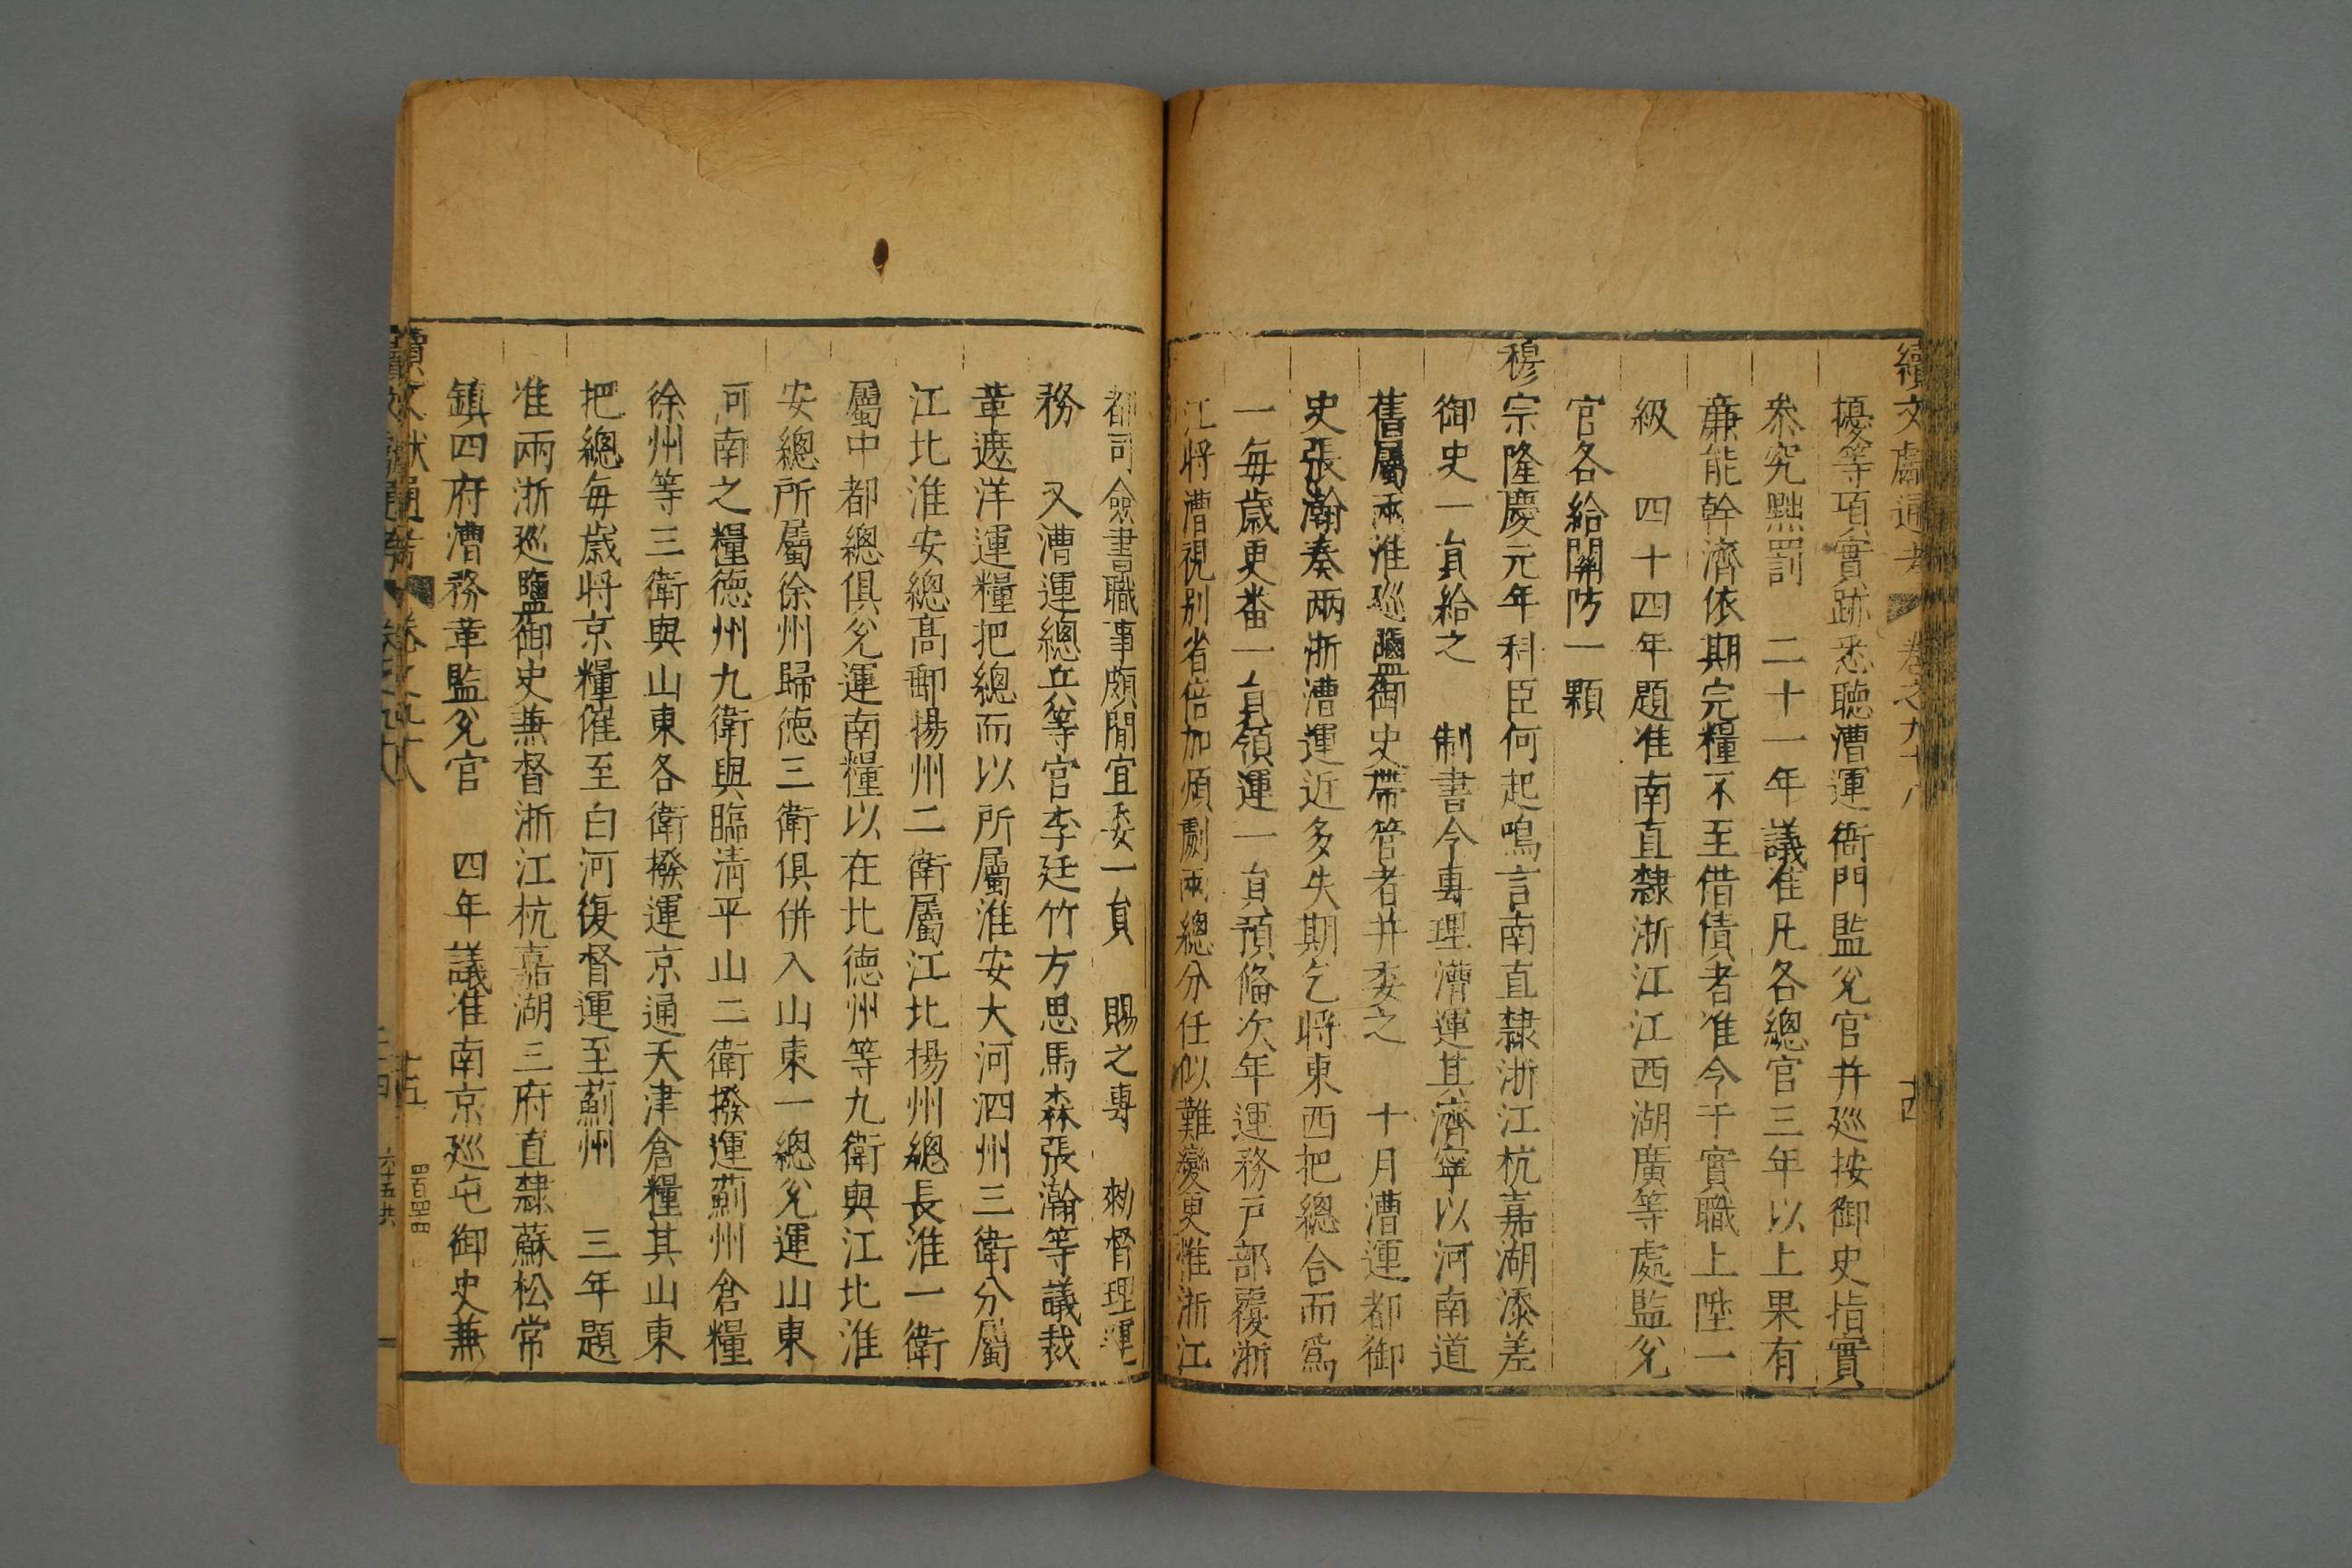 續文獻通考 卷之九十八 十四
擾等項實跡悉聽漕運衙門監兌官并巡按御史指實
叅究黜罰 二十一年議准凡各總官三年以上果有
廉能幹濟依期完糧不至借債者准令于實職上陞一
級 四十四年題准南直隸浙江江西湖廣等處監兌
官各給關防一顆
穆宗隆慶元年科臣何起鳴言南直隸浙江杭嘉湖添差
御史一員給之 制書令專理漕運其濟寧以河南道
舊屬兩淮巡鹽御史帶管者并委之 十月漕運都御
史張瀚奏兩浙漕運近多失期乞將東西把總合而爲
一每歲更番一員領運一員預俻次年運務戸部覆浙
江將漕視别省倍加煩劇兩總分任似難變更惟浙江
都司僉書職事頗閒宜委一員 賜之專 勑督理運
務 又漕運總兵等官李廷竹方思馬森張瀚等議裁
革遮洋運糧把總而以所屬淮安大河泗州三衛分屬
江北淮安總髙郵揚州二衛屬江北揚州總長淮一衛
屬中都總俱兌運南糧以在北德州等九衛與江北淮
安總所屬徐州歸德三衛俱併入山東一總兌運山東
河南之糧德州九衛與臨清平山二衛撥運薊州倉糧
徐州等三衛與山東各衛撥運京通天津倉糧其山東
把總每歲將京糧催至白河復督運至薊州 三年題
准兩浙巡鹽御史兼督浙江杭嘉湖三府直隸蘇松常
鎮四府漕務革監兌官 四年議准南京巡屯御史兼
續文獻通考 卷之九十八 十五